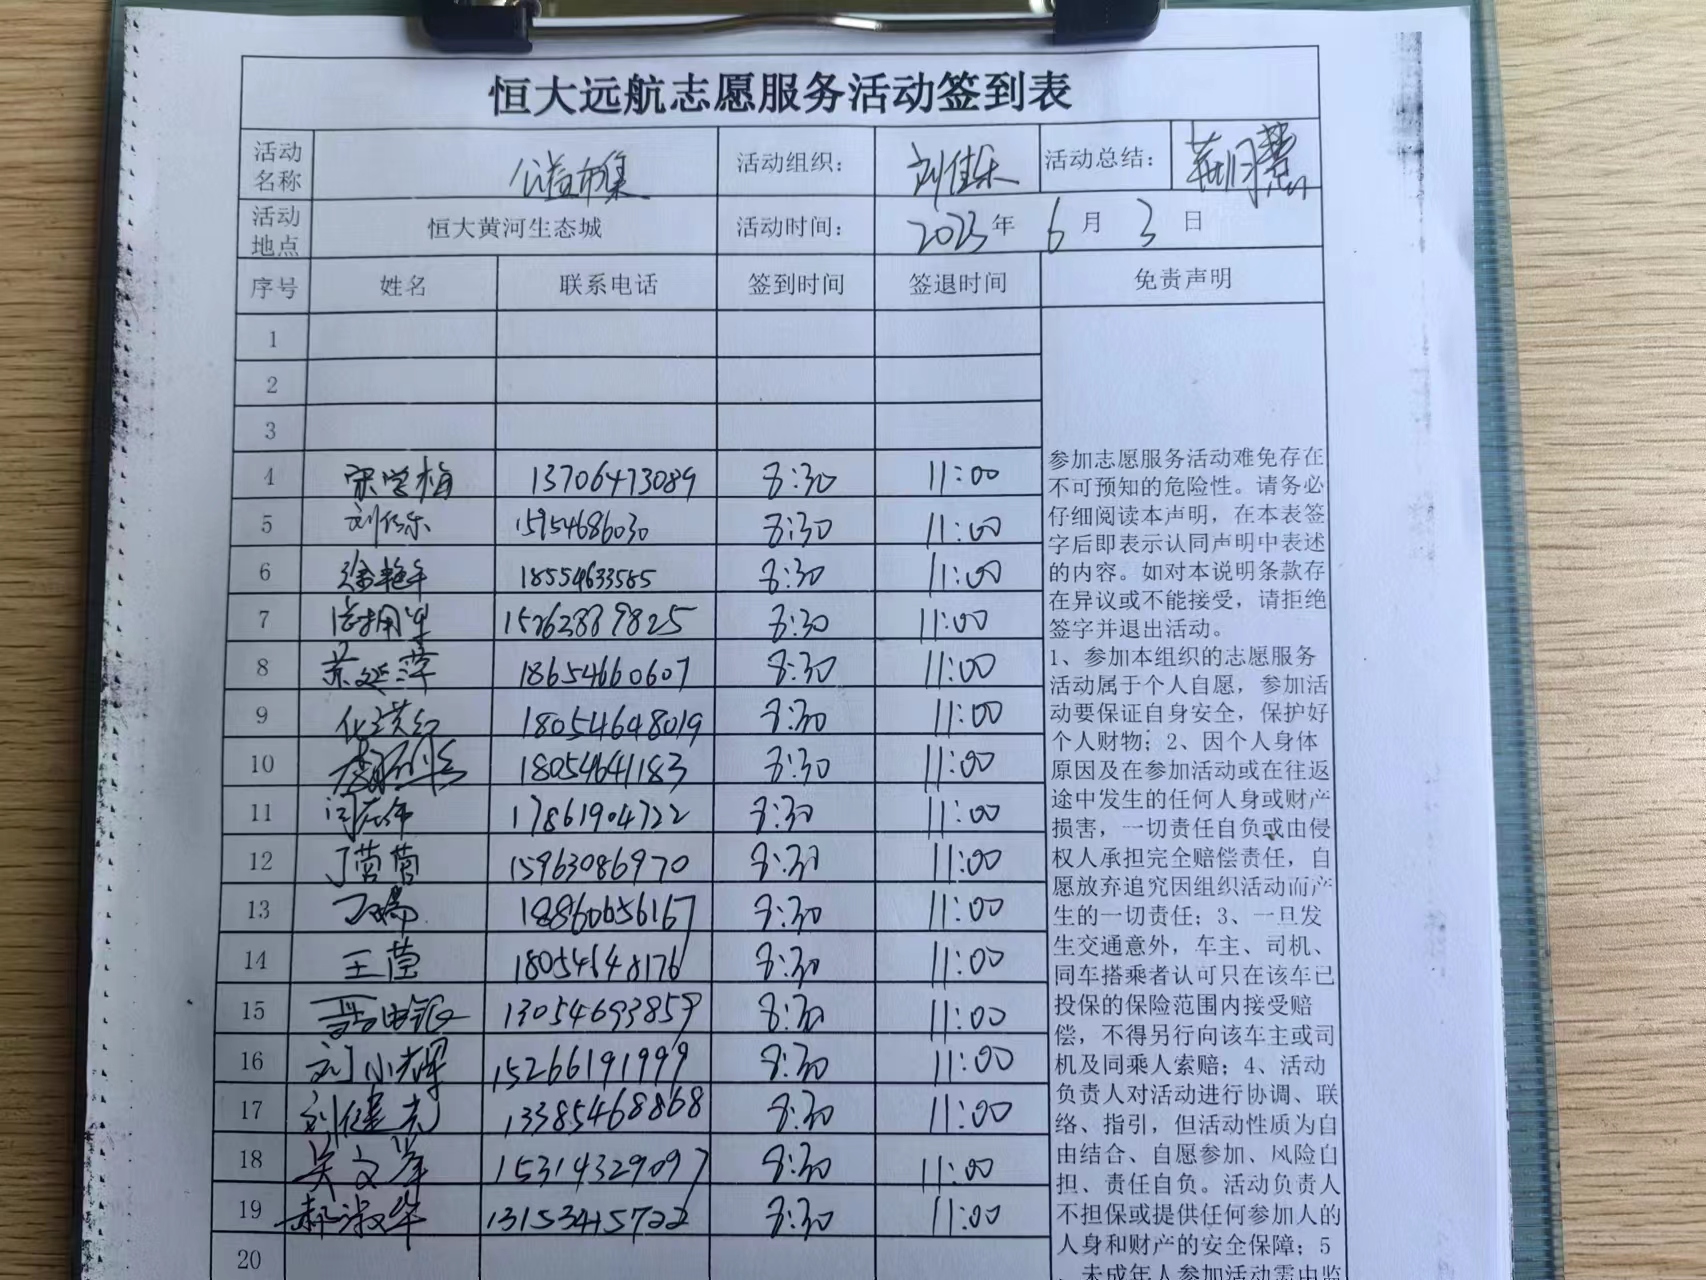 恒大远航志愿服务活动签到表
活动名称 公益市集 活动组织： 刘佳乐 活动总结：
活动地点 恒大黄河生态城 活动时间： 2023年 6月 3日
序号 姓名 联系电话 签到时间 签退时间 免责声明
1
2
3
4 宋学梅 13706473089 8:30 11:00
5 刘佳乐 15954686030 8:30 11:00
6 18554633585 8:30 11:00
7 15263889825 8:30 11:00
8 18654660607 8:30 11:00
9 18054648019 8:30 11:00
10 18054641183 8:30 11:00
11 17861904722 8:30 11:00
12 丁莺莺 15963086970 8:30 11:00
13 18860656167 8:30 11:00
14 王莹 18054648176 8:30 11:00
15 13054693859 8:30 11:00
16 刘小辉 15266191999 8:30 11:00
17 刘健 13385468868 8:30 11:00
18 吴文 15314329097 8:30 11:00
19 郝淑华 13153415722 8:30 11:00
20
参加志愿服务活动难免存在
不可预知的危险性。请务必
仔细阅读本声明，在本表签
字后即表示认同声明中表述
的内容。如对本说明条款存
在异议或不能接受，请拒绝
签字并退出活动。
1、参加本组织的志愿服务
活动属于个人自愿，参加活
动要保证自身安全，保护好
个人财物；2、因个人身体
原因及在参加活动或在往返
途中发生的任何人身或财产
损害，一切责任自负或由侵
权人承担完全赔偿责任，自
愿放弃追究因组织活动而产
生的一切责任；3、一旦发
生交通意外，车主、司机、
同车搭乘者认可只在该车已
投保的保险范围内接受赔
偿，不得另行向该车主或司
机及同乘人索赔；4、活动
负责人对活动进行协调、联
络、指引，但活动性质为自
由结合、自愿参加、风险自
担、责任自负。活动负责人
不担保或提供任何参加人的
人身和财产的安全保障；5
、未成年人参加活动需由监